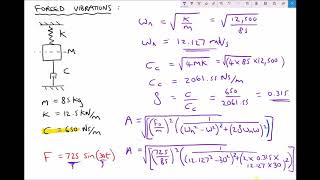 FORCED VIBRATIONS :
K
M
C
M = 85 kg
K = 12.5 kN/m
C = 650 Ns/m
F = 725 sin(30t)
ωn = √(K/m) = √(12,500/85)
ωn = 12.127 rad/s
Cc = √(4MK) = √(4×85×12,500)
Cc = 2061.55 Ns/m
ζ = C/Cc = 650/2061.55 = 0.315
A = √((F0/m)² 1/((ωn²-ω²)²+(2ζωnω)²))
A = √((725/85)² 1/((12.127²-30²)²+(2×0.315×12.127×30)²))